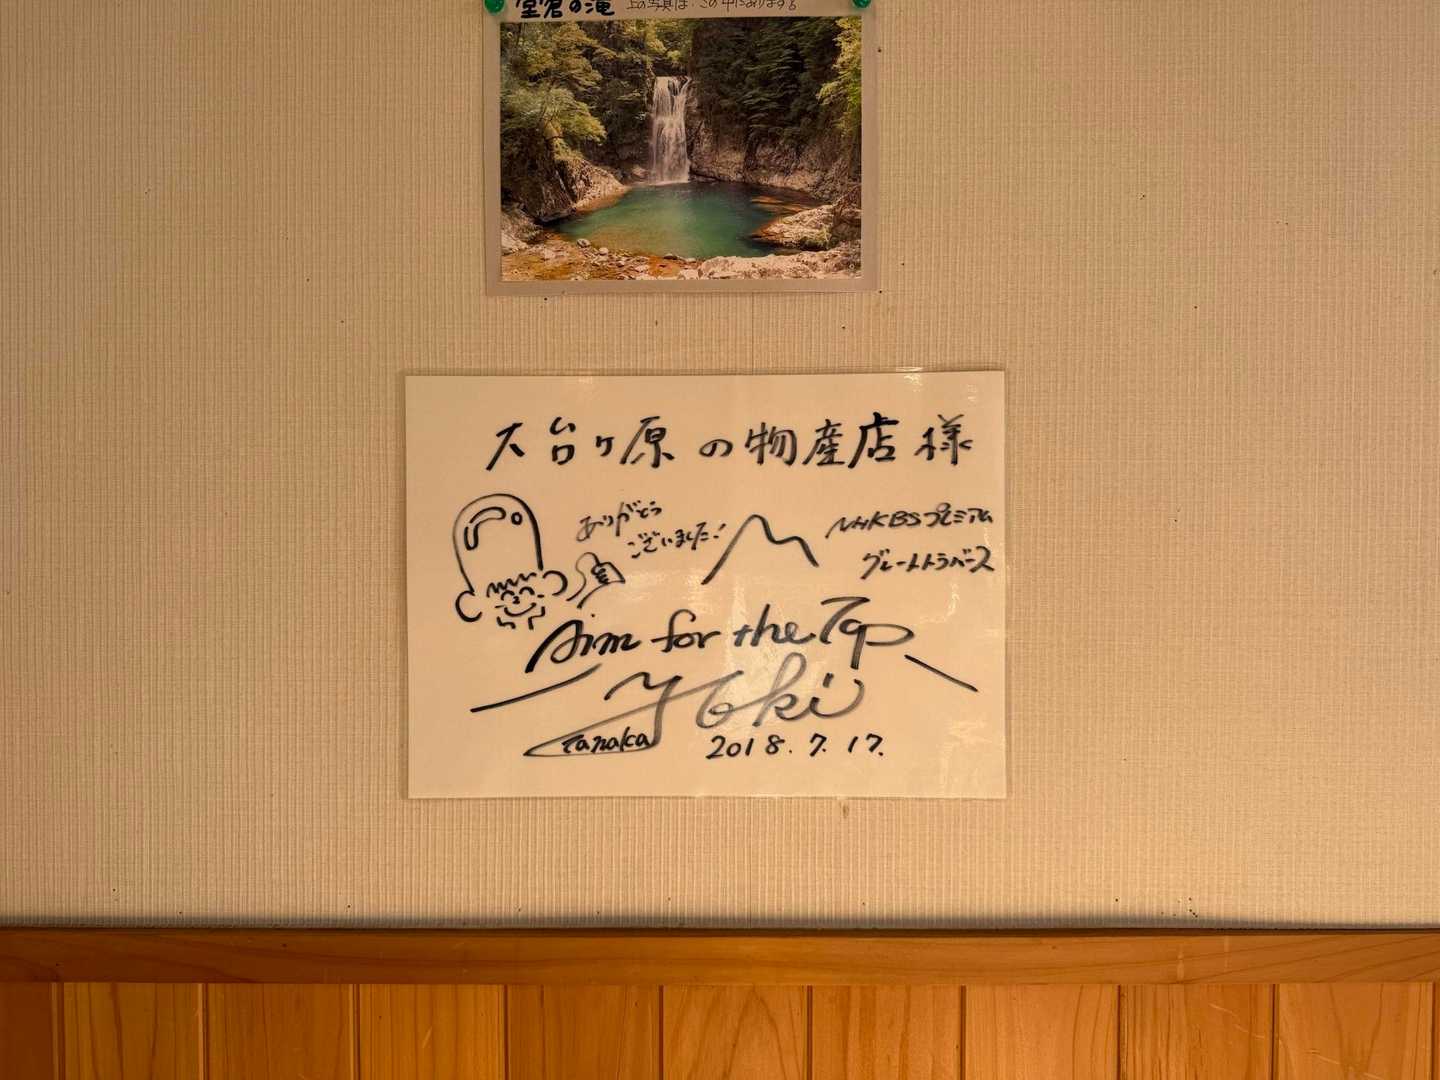 堂倉の滝 上の写真は、この中にあります。
大台ヶ原の物産店様
ありがとう
ございました!
NHKBSプレミアム
グレートトラバース
Aim for the Top
Yoki
Tanaka
2018.7.17.